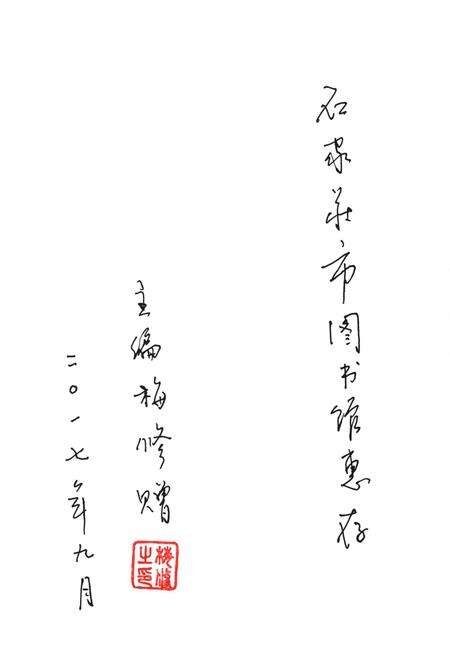 石家庄市图书馆惠存
主编梅修赠
二〇一七年九月